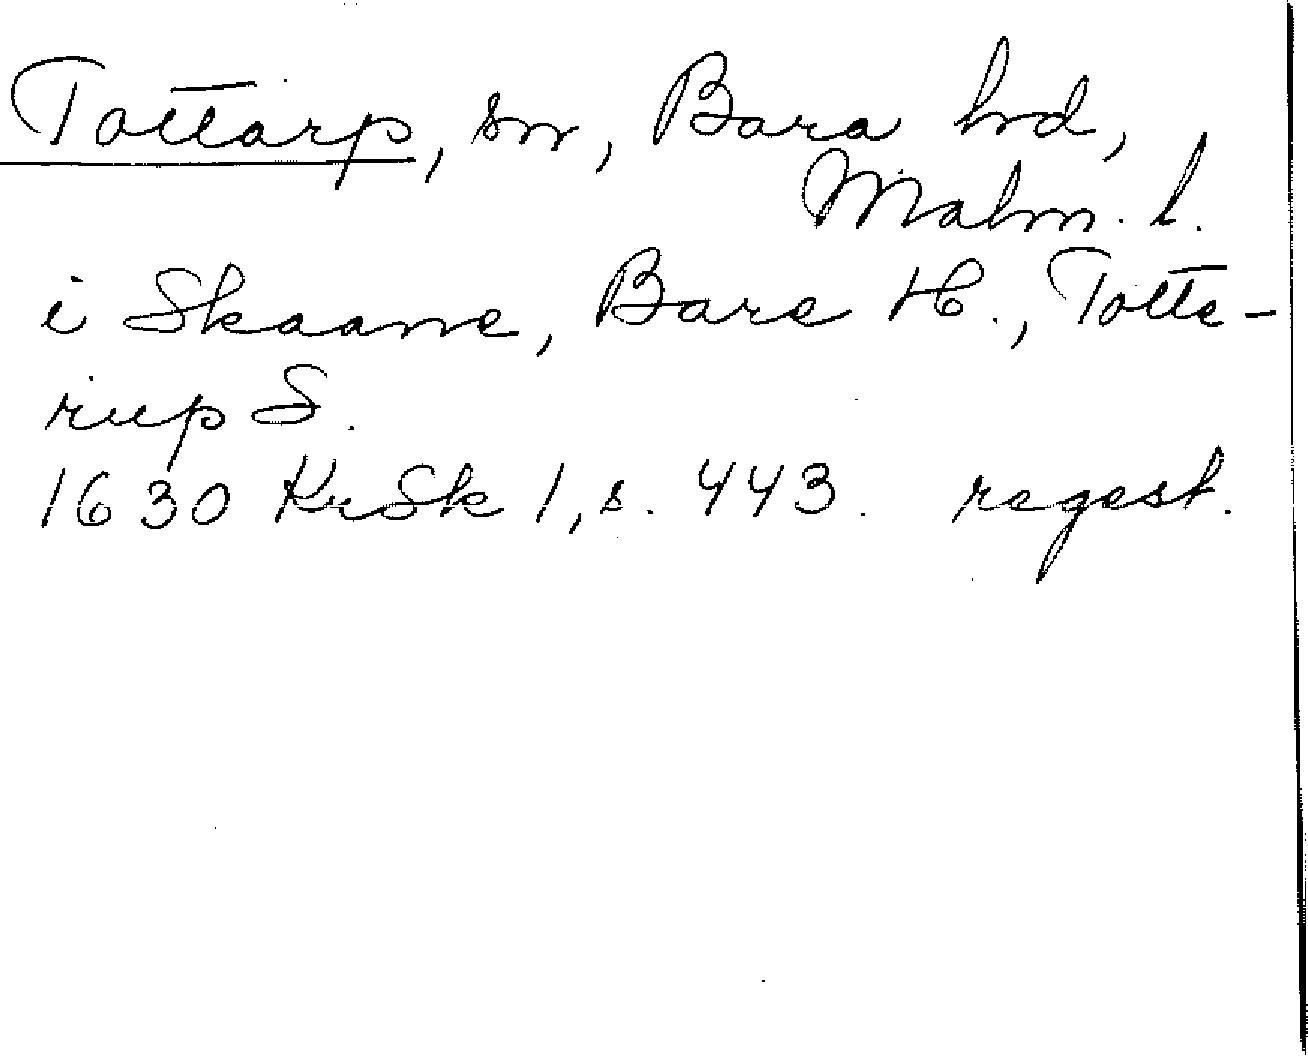 Tottarp, sn, Bara hd,
Malm. l.
i Skaane, Bare H., Totte-
rup S.
1630 KrSk 1, s. 443. regest.